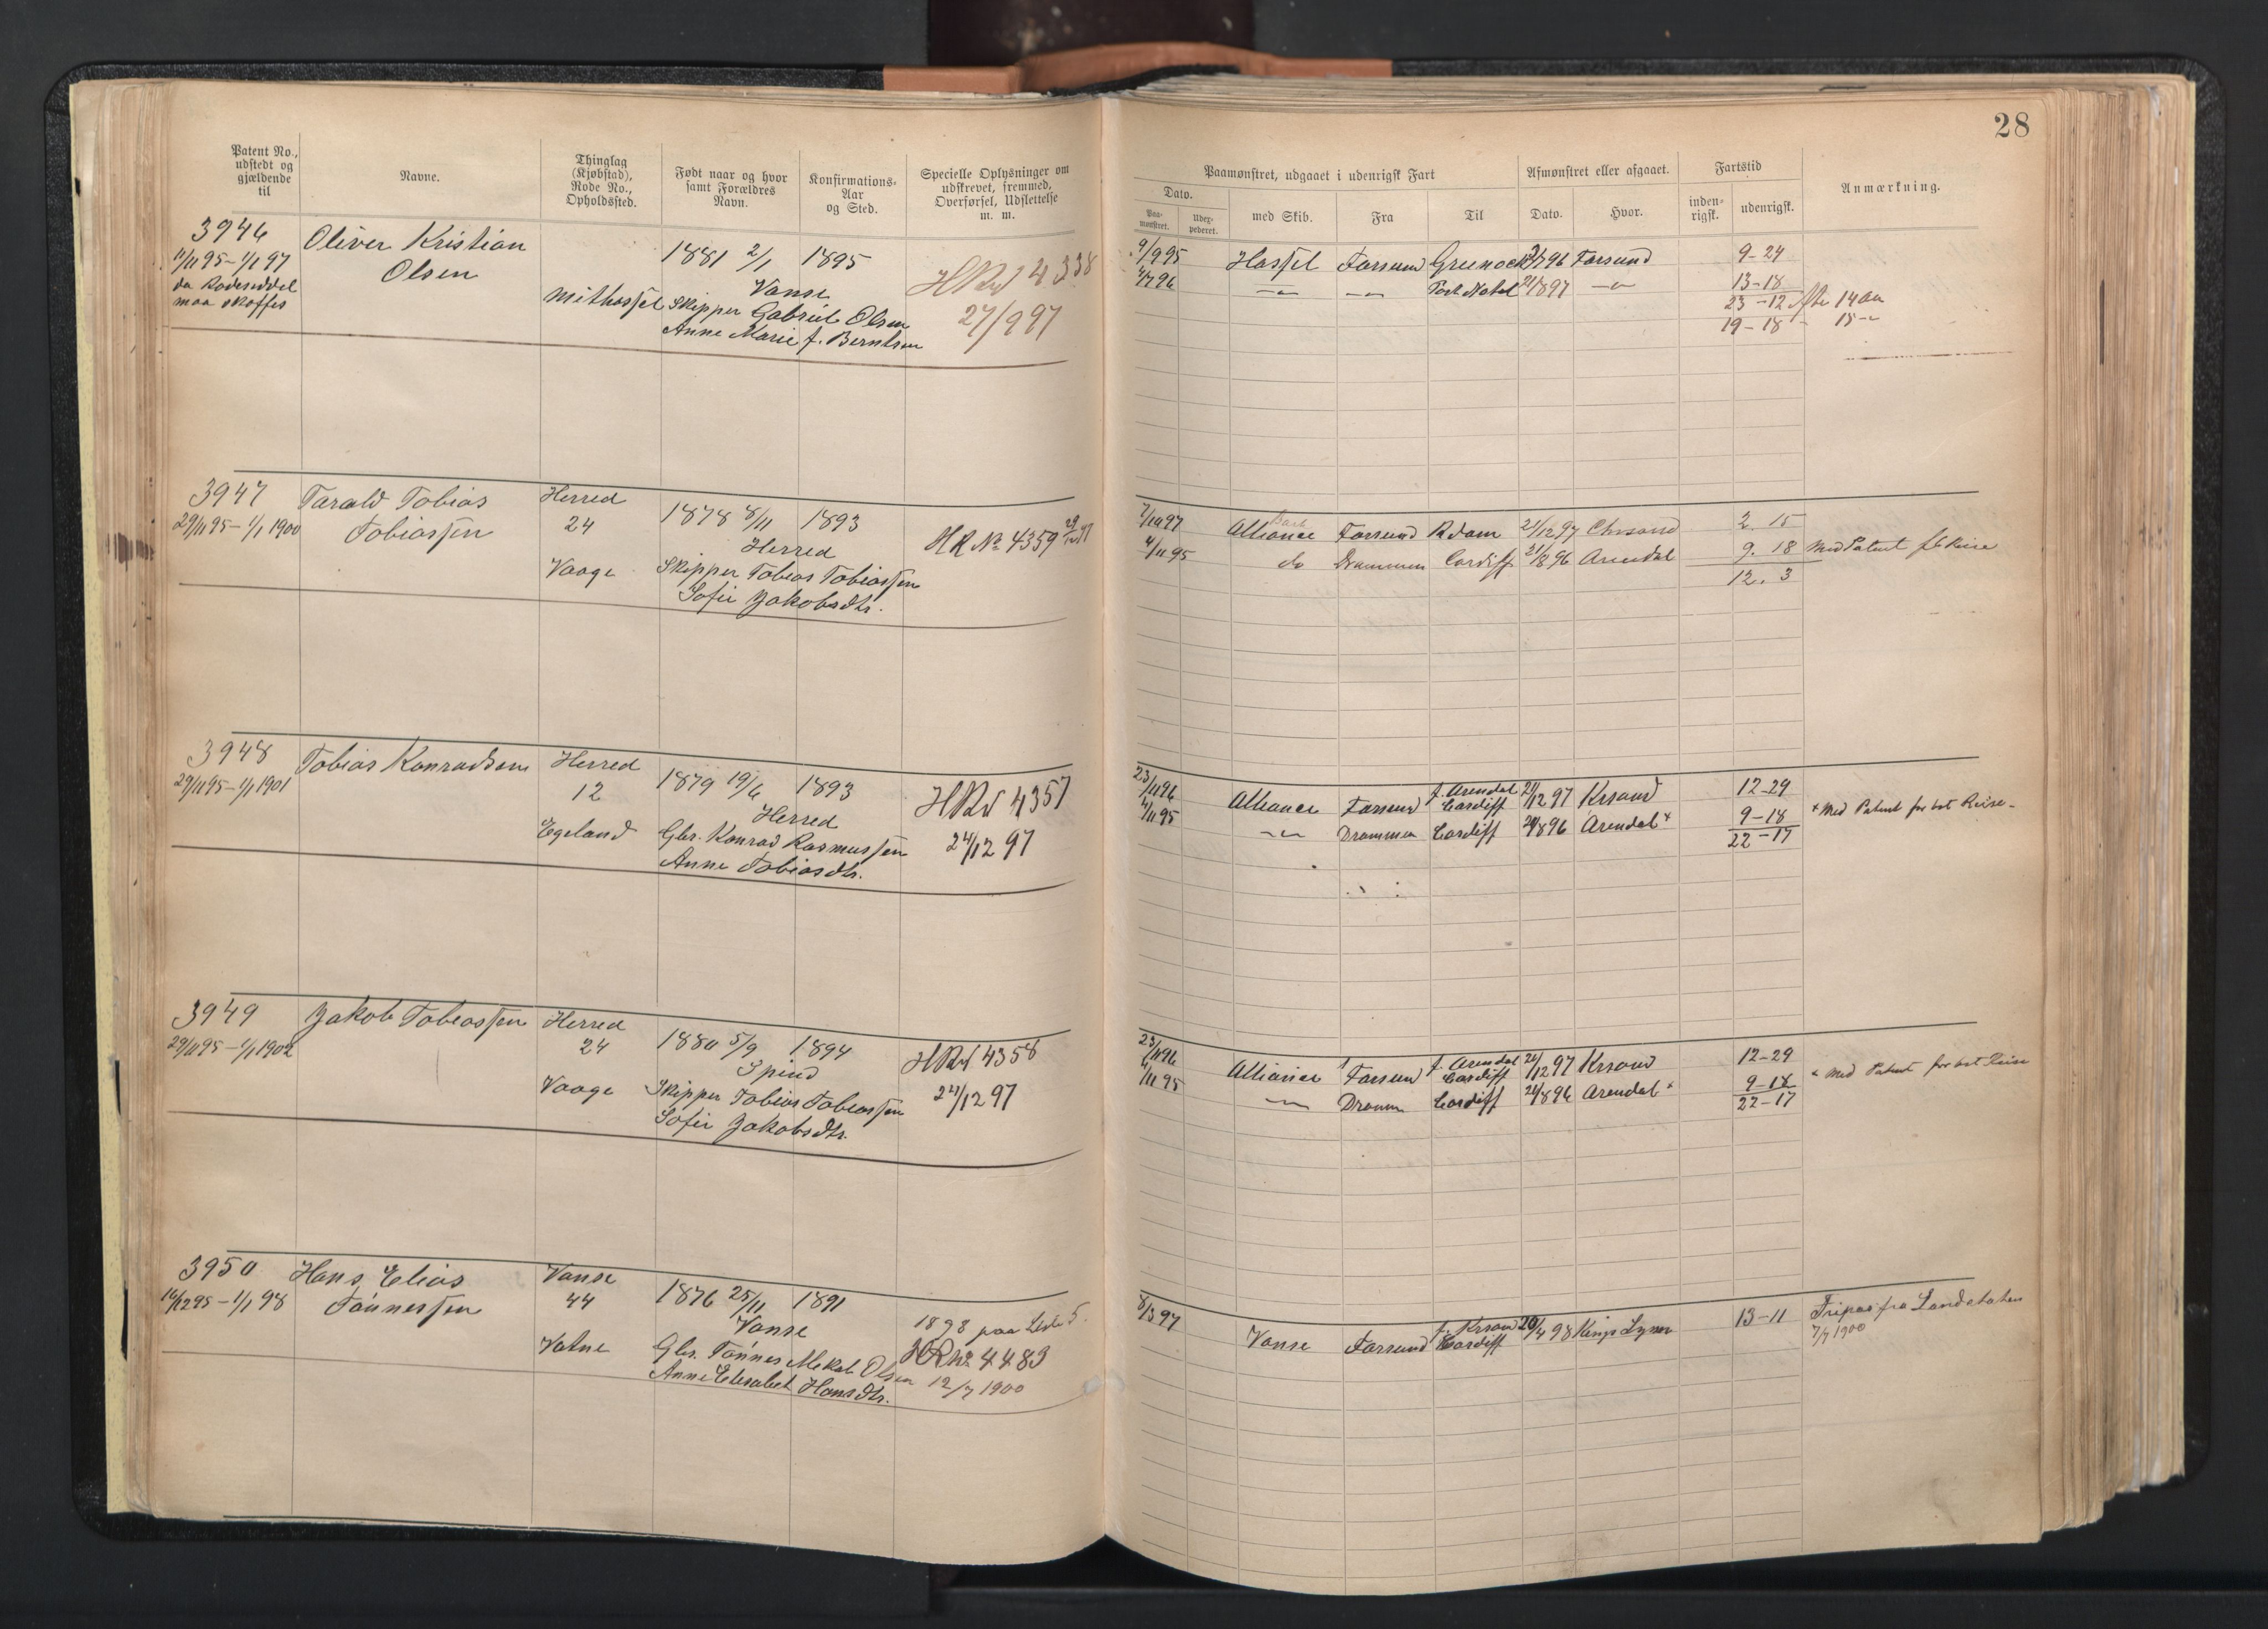 28
Patent No., udstedt og gjældende til
Navne.
Thinglag (Kjøbstad), Rode No., Opholdssted.
Født naar og hvor samt Forældres Navn.
Konfirmations-Aar og Sted.
Specielle Oplysninger om udskrevet, fremmed, Overførsel, Udslettelse m. m.
Paamønstret, udgaaet i udenrigsk Fart
Afmønstret eller afgaaet.
Fartstid
Anmærkning.
Dato.
Paa-mønstret.
Udex-pederet.
med Skib.
Fra
Til
Dato.
Hvor.
inden-rigsk.
udenrigsk.
3946
Oliver Kristian
Olsen
11/11 95 - 1/1 97
da Rodeseddel
maa skaffes
Mithassel
1881 2/1 1895
Vanse
Skipper Gabriel Olsen
Anne Marie f. Berntsen
HRN 4338
27/9 97
9/9 95 Hassel Farsund Greenock 96 Farsund 9-24
Port Natal 13-18
23-12 14 Aar
19-18 - 15 -
3947
Tarald Tobias
Tobiassen
29/11 95 - 1/1 1900
Herred
24
Vaage
1878 8/11 1893
Herred
Skipper Tobias Tobiassen
Sofie Jakobsdtr.
HR No 4359
7/10 97 Alliance Bark Farsund Rdam 21/12 97 Chrsand 2. 15
4/11 95 do Drammen Cardiff 21/8 96 Arendal 9. 18 Med Patent
12. 3
3948
Tobias Konradsen
29/11 95 - 1/1 1901
Herred
12
Egeland
1879 19/6 1893
Herred
Gbr. Konrad Rasmussen
Anne Tobiasdtr.
HRN 4357
24/12 97
23/11 96 Alliance Farsund f. Arendal Cardiff 21/12 97 Krsand 12-29
4/11 95 -"- Drammen Cardiff 21/8 96 Arendal x 9-18 x Med Patent for 1st Reise -
22-17
3949
Jakob Tobiassen
29/11 95 - 1/1 1902
Herred
24
Vaage
1880 5/9 1894
Spind
Skipper Tobias Tobiassen
Sofie Jakobsdtr.
HRN 4358
24/12 97
23/11 96 Alliance Farsund f. Arendal Cardiff 21/12 97 Krsand 12-29
4/11 95 -"- Dramm Cardiff 21/8 96 Arendal x 9-18 x Med Patent for 1st Reise
22-17
3950
Hans Elias
Tønnessen
14/12 95 - 1/1 98
Vanse
44
Vatne
1876 25/11 1891
Vanse
Gbr. Tønnes Mikal Olsen
Anne Elisabet Hansdtr.
1898 paa Liste 5.
HR No 4483
12/7 1900
8/3 97 Vanse Farsund f. Krsand Cardiff 20/4 98 Kings Lynn 13-11 Fripas fra Landstaten
7/7 1900